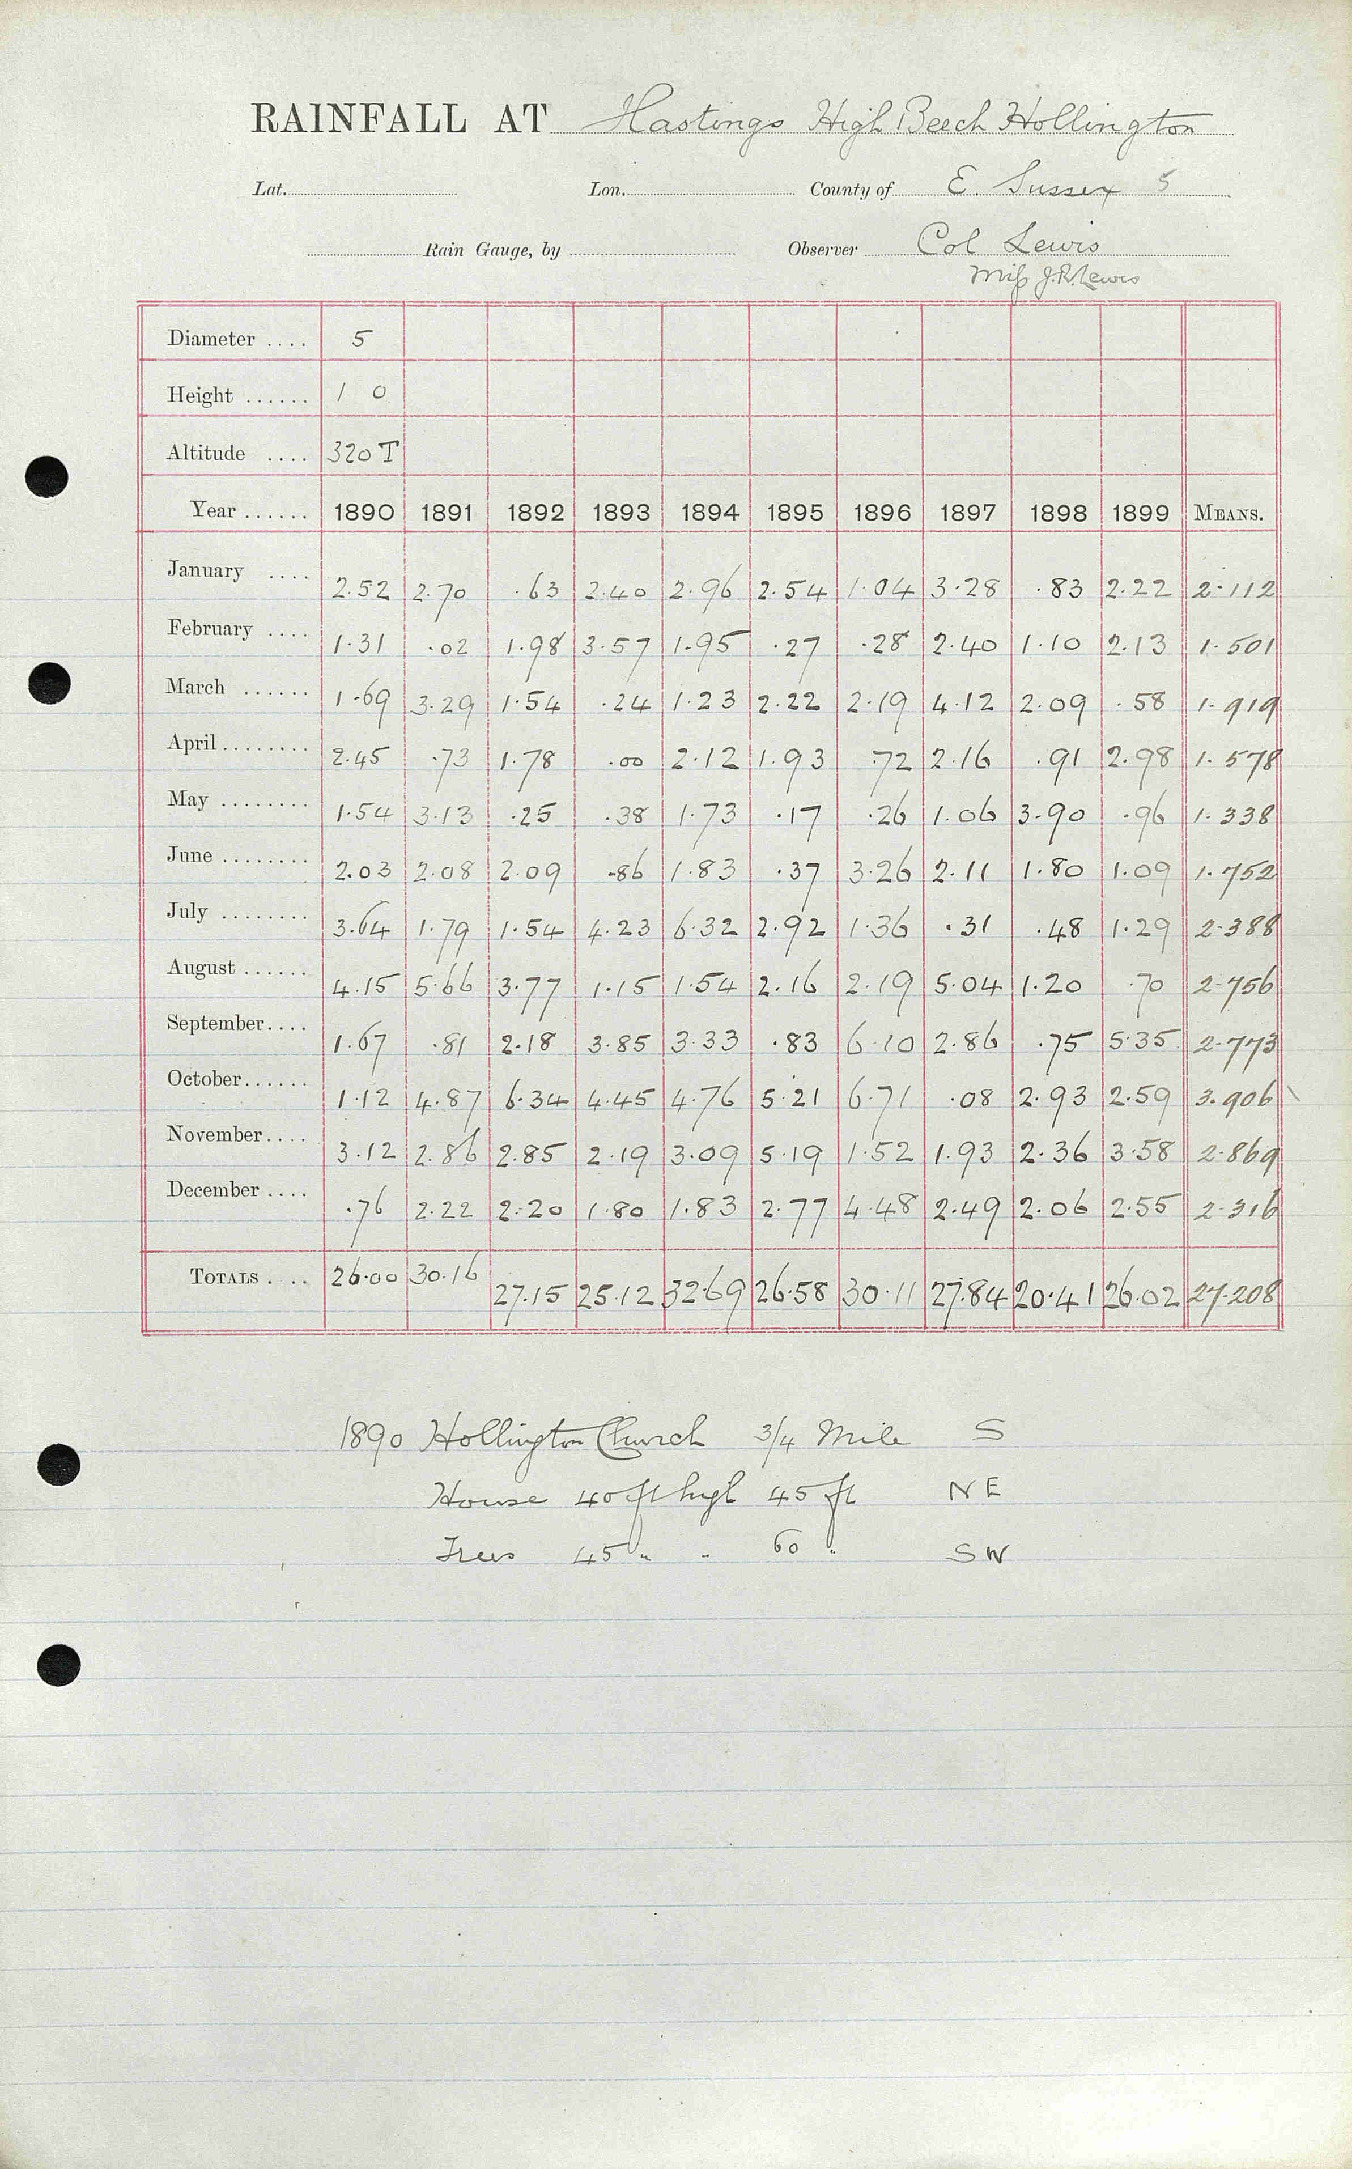 RAINFALL AT Hastings High Beech Hollington
Lat. Lon. County of E. Sussex 5
Rain Gauge, by Observer Col Lewis
Miss J.R. Lewis
Diameter .... 5
Height ...... 1 0
Altitude .... 320 T
Year ...... 1890 1891 1892 1893 1894 1895 1896 1897 1898 1899 MEANS.
January .... 2.52 2.70 .63 2.40 2.96 2.54 1.04 3.28 .83 2.22 2.112
February .... 1.31 .02 1.98 3.57 1.95 .27 .28 2.40 1.10 2.13 1.501
March ...... 1.69 3.29 1.54 .24 1.23 2.22 2.19 4.12 2.09 .58 1.919
April ........ 2.45 .73 1.78 .00 2.12 1.93 .72 2.16 .91 2.98 1.578
May ........ 1.54 3.13 .25 .38 1.73 .17 .26 1.06 3.90 .96 1.338
June ........ 2.03 2.08 2.09 .86 1.83 .37 3.26 2.11 1.80 1.09 1.752
July ........ 3.64 1.79 1.54 4.23 6.32 2.92 1.36 .31 .48 1.29 2.388
August ...... 4.15 5.66 3.77 1.15 1.54 2.16 2.19 5.04 1.20 .70 2.756
September .... 1.67 .81 2.18 3.85 3.33 .83 6.10 2.86 .75 5.35 2.773
October ...... 1.12 4.87 6.34 4.45 4.76 5.21 6.71 .08 2.93 2.59 3.906
November .... 3.12 2.86 2.85 2.19 3.09 5.19 1.52 1.93 2.36 3.58 2.869
December .... .76 2.22 2.20 1.80 1.83 2.77 4.48 2.49 2.06 2.55 2.316
TOTALS .... 26.00 30.16 27.15 25.12 32.69 26.58 30.11 27.84 20.41 26.02 27.208
1890 Hollington Church 3/4 Mile S
House 40 ft high 45 ft NE
Trees 45 " " 60 " SW